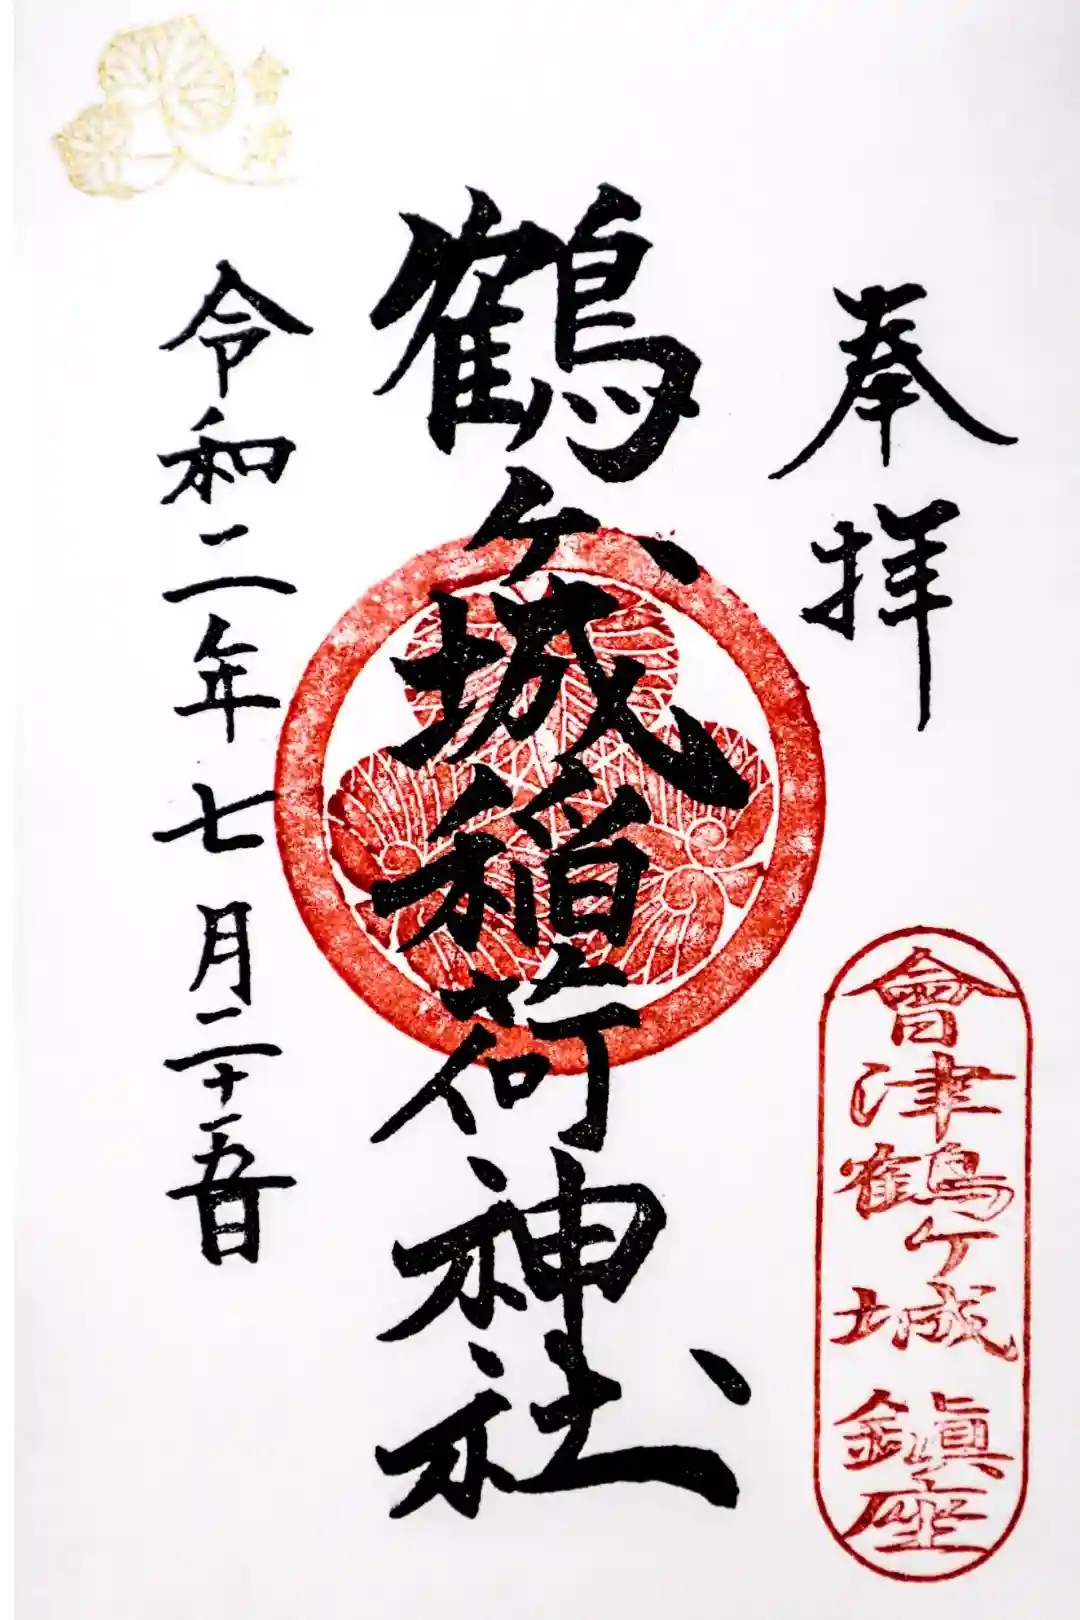 奉拝
會津鶴ケ城鎮座
鶴ケ城稲荷神社
令和二年七月二十五日
會津